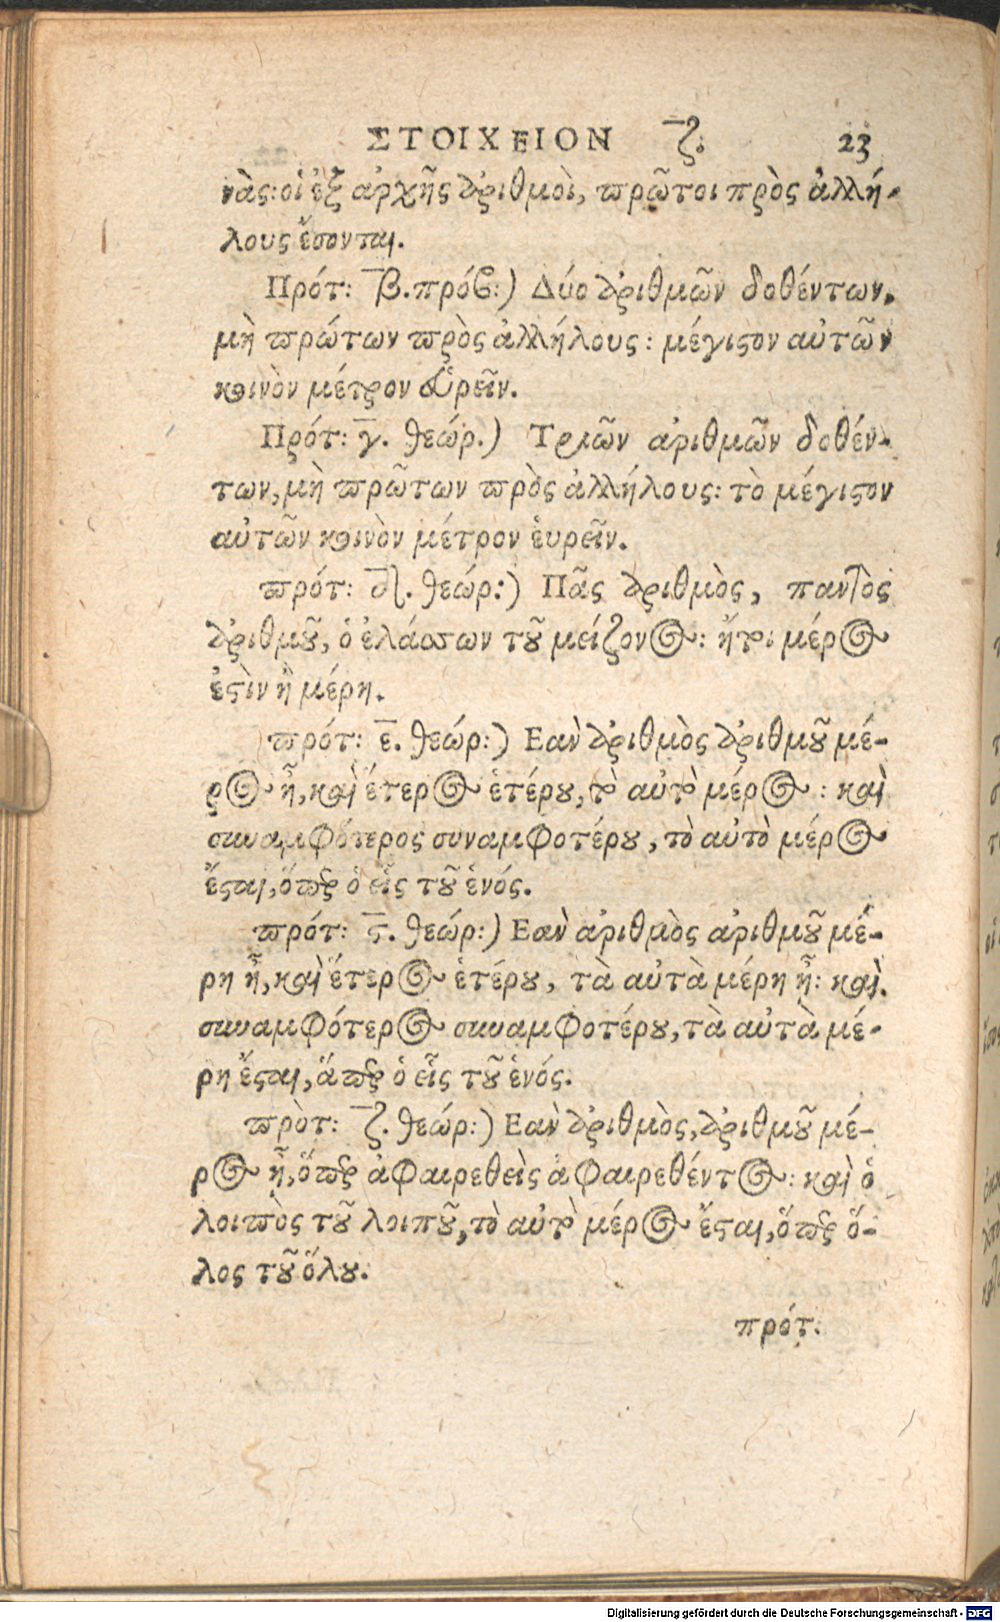 ΣΤΟΙΧΕΙΟΝ ζ. 23
νὰς: οἱ ἐξ ἀρχῆς ἀριθμοὶ, πρῶτοι πρὸς ἀλλή-
λους ἔσονται.
Πρότ: β. πρόβ:) Δύο ἀριθμῶν δοθέντων,
μὴ πρώτων πρὸς ἀλλήλους: μέγιστον αὐτῶν
κοινὸν μέτρον εὑρεῖν.
Πρότ: γ. θεώρ.) Τριῶν ἀριθμῶν δοθέν-
των, μὴ πρῶτων πρὸς ἀλλήλους: τὸ μέγιστον
αὐτῶν κοινὸν μέτρον ἑυρεῖν.
πρότ: δ. θεώρ:) Πᾶς ἀριθμὸς, παντὸς
ἀριθμοῦ, ὁ ἐλάσσων τοῦ μείζονος: ἤτοι μέρος
ἐστὶν ἢ μέρη.
πρότ: ε. θεώρ:) Εαν ἀριθμὸς ἀριθμοῦ μέ-
ρος ἦ, καὶ ἕτερος ἑτέρου, τὸ αὐτὸ μέρος: καὶ
συναμφότερος συναμφοτέρου, τὸ αὐτὸ μέρος
ἔσται, ὅπερ ὁ εἷς τοῦ ἑνός.
πρότ: ς. θεώρ:) Εαν ἀριθμὸς ἀριθμοῦ μέ-
ρη ἦ, καὶ ἕτερος ἑτέρου, τὰ αὐτὰ μέρη ἦ: καὶ
συναμφότερος συναμφοτέρου, τὰ αὐτὰ μέ-
ρη ἔσται, ἅπερ ὁ εἷς τοῦ ἑνός.
πρὸτ: ζ. θεώρ:) Εαν ἀριθμὸς, ἀριθμοῦ μέ-
ρος ἦ, ὅπερ ἀφαιρεθεὶς ἀφαιρεθέντος: καὶ ὁ
λοιπὸς τοῦ λοιποῦ, τὸ αὐτὸ μέρος ἔσται, ὅπερ ὅ-
λος τοῦ ὅλου.
πρότ.
Digitalisierung gefördert durch die Deutsche Forschungsgemeinschaft - DFG